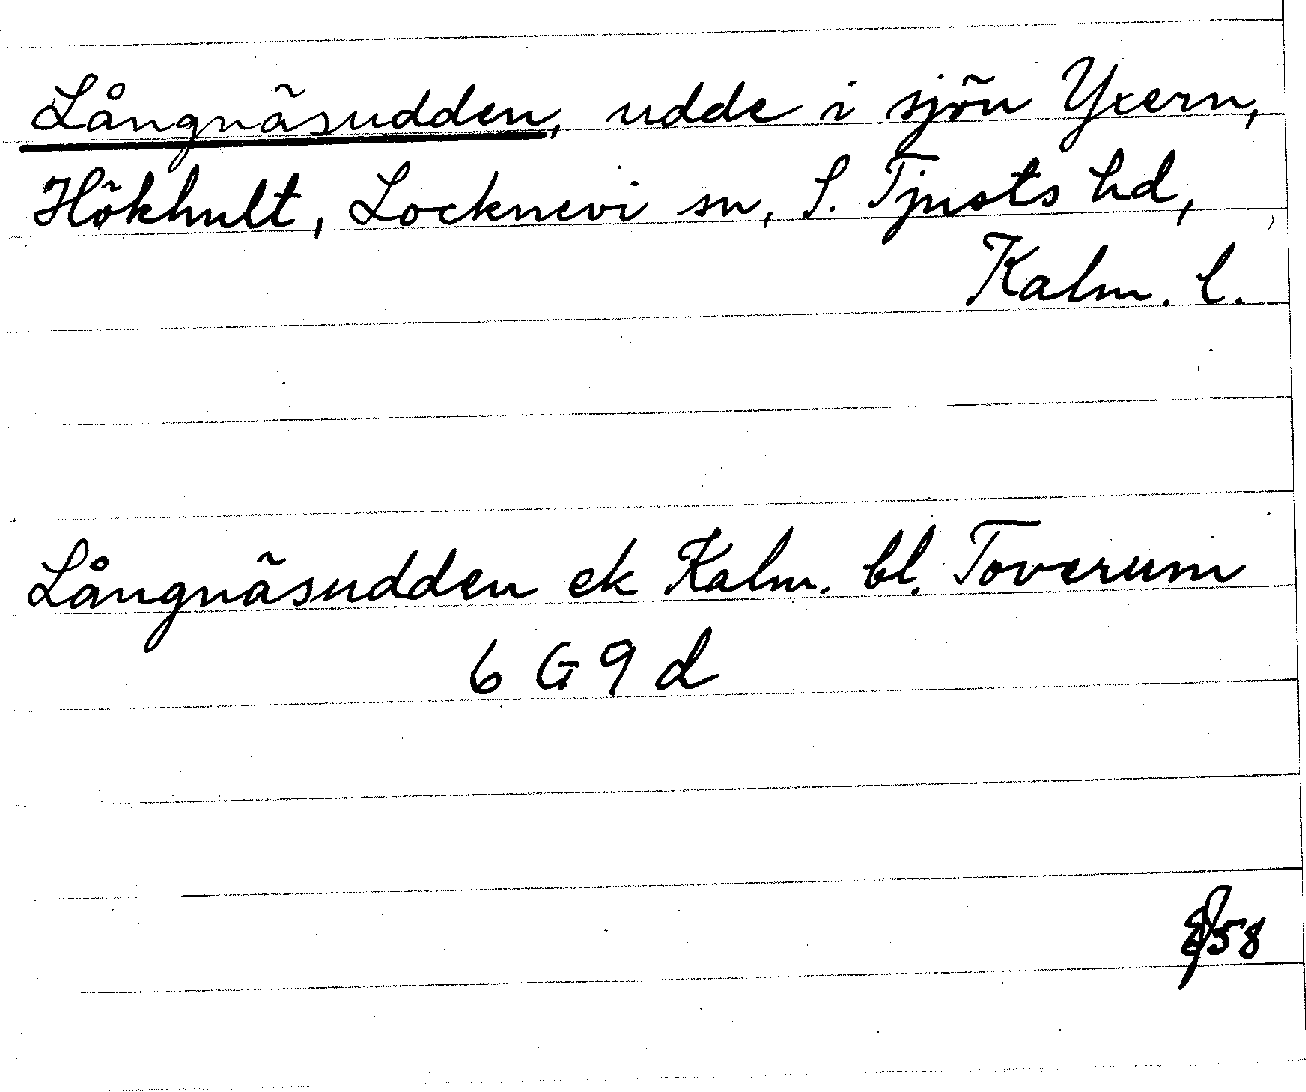 Långnäsudden, udde i sjön Yxern,
Hökhult, Locknevi sn, S. Tjusts hd,
Kalm. l.
Långnäsudden ek Kalm. bl. Toverum
6 G 9 d
58